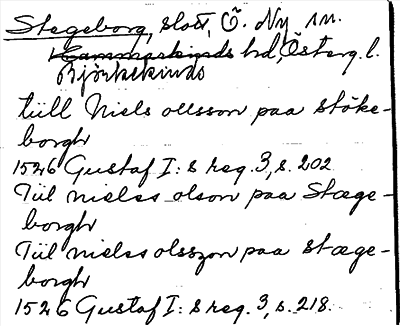 Stegeborg, slott, Ö. Ny sn.
Hammarkinds hd, Österg. l.
Björkekinds
tiill Niels ollsson paa stöke-
borgh
1526 Gustaf I:s reg. 3, s. 202
Tiil nielss olson paa Stæge-
borgh
Tiil nielss olsszon paa stæge-
borgh
1526 Gustaf I:s reg. 3, s. 218.